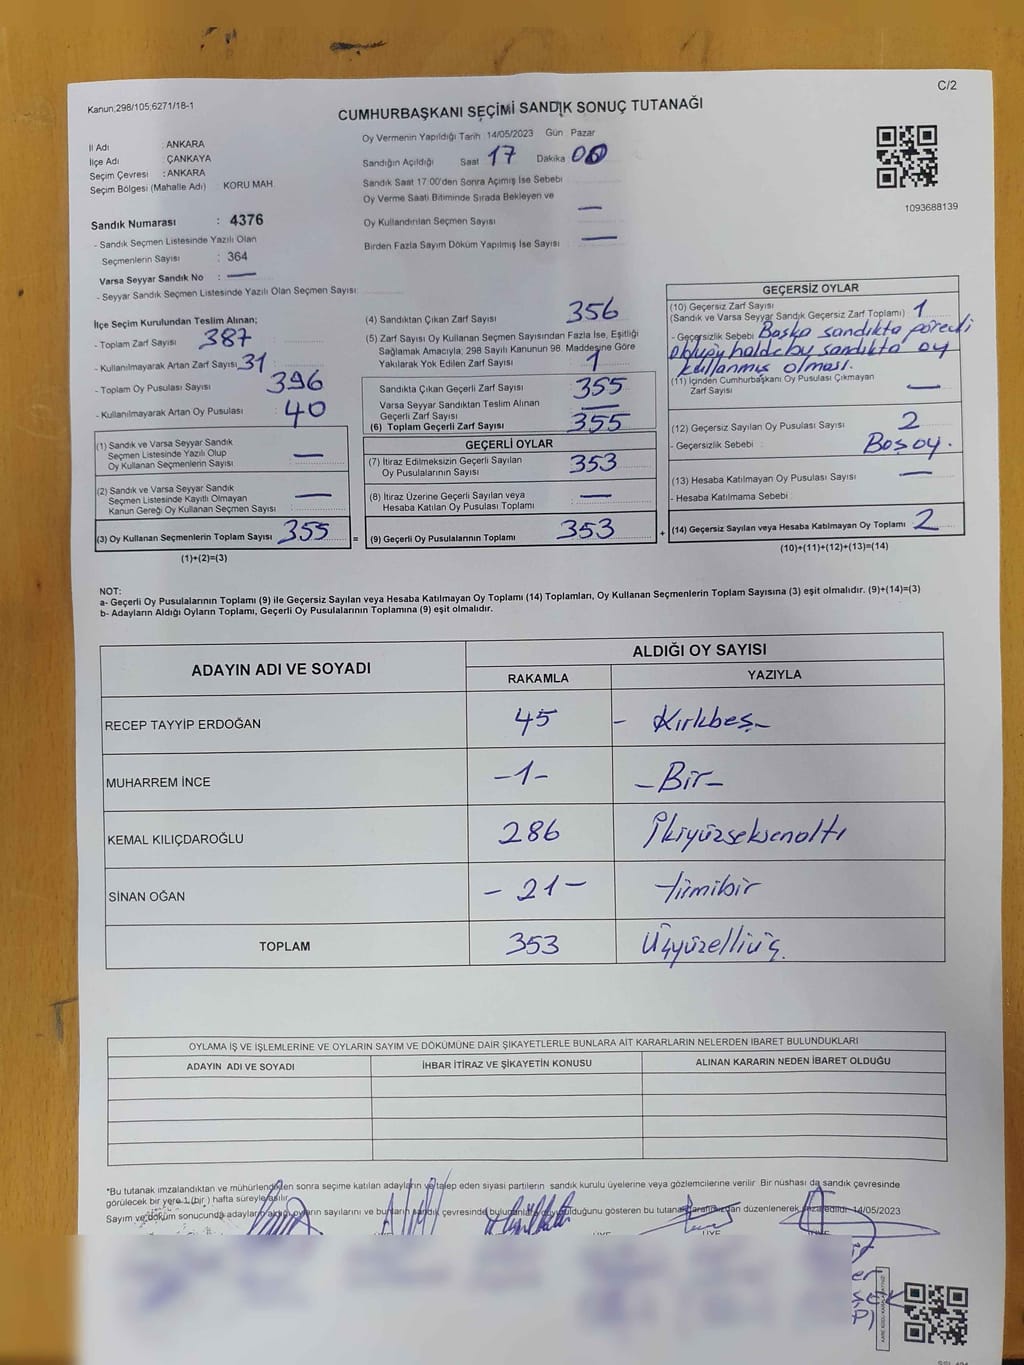 C/2
Kanun;298/105;6271/18-1
CUMHURBAŞKANI SEÇİMİ SANDIK SONUÇ TUTANAĞI
İl Adı : ANKARA
İlçe Adı : ÇANKAYA
Seçim Çevresi : ANKARA
Seçim Bölgesi (Mahalle Adı) KORU MAH.
Oy Vermenin Yapıldığı Tarih 14/05/2023 Gün Pazar
Sandığın Açıldığı Saat 17 Dakika 00
Sandık Saat 17:00'den Sonra Açımış İse Sebebi
Oy Verme Saati Bitiminde Sırada Bekleyen ve
Oy Kullandırılan Seçmen Sayısı —
Birden Fazla Sayım Döküm Yapılmış İse Sayısı —
1093688139
Sandık Numarası : 4376
- Sandık Seçmen Listesinde Yazılı Olan
Seçmenlerin Sayısı : 364
Varsa Seyyar Sandık No : —
- Seyyar Sandık Seçmen Listesinde Yazılı Olan Seçmen Sayısı:
İlçe Seçim Kurulundan Teslim Alınan;
- Toplam Zarf Sayısı 387
- Kullanılmayarak Artan Zarf Sayısı 31
- Toplam Oy Pusulası Sayısı 396
- Kullanılmayarak Artan Oy Pusulası 40
(1) Sandık ve Varsa Seyyar Sandık
Seçmen Listesinde Yazılı Olup
Oy Kullanan Seçmenlerin Sayısı —
(2) Sandık ve Varsa Seyyar Sandık
Seçmen Listesinde Kayıtlı Olmayan
Kanun Gereği Oy Kullanan Seçmen Sayısı —
(3) Oy Kullanan Seçmenlerin Toplam Sayısı 355 =
(1)+(2)=(3)
(4) Sandıktan Çıkan Zarf Sayısı 356
(5) Zarf Sayısı Oy Kullanan Seçmen Sayısından Fazla İse, Eşitliği
Sağlamak Amacıyla, 298 Sayılı Kanunun 98. Maddesine Göre
Yakılarak Yok Edilen Zarf Sayısı 1
Sandıkta Çıkan Geçerli Zarf Sayısı 355
Varsa Seyyar Sandıktan Teslim Alınan
Geçerli Zarf Sayısı —
(6) Toplam Geçerli Zarf Sayısı 355
GEÇERLİ OYLAR
(7) İtiraz Edilmeksizin Geçerli Sayılan
Oy Pusulalarının Sayısı 353
(8) İtiraz Üzerine Geçerli Sayılan veya
Hesaba Katılan Oy Pusulası Toplamı —
(9) Geçerli Oy Pusulalarının Toplamı 353 +
GEÇERSİZ OYLAR
(10) Geçersiz Zarf Sayısı
(Sandık ve Varsa Seyyar Sandık Geçersiz Zarf Toplamı) 1
- Geçersizlik Sebebi Başka sandıkta görevli
olduğu halde bu sandıkta oy
kullanmış olması.
(11) İçinden Cumhurbaşkanı Oy Pusulası Çıkmayan
Zarf Sayısı —
(12) Geçersiz Sayılan Oy Pusulası Sayısı 2
- Geçersizlik Sebebi : Boş oy.
(13) Hesaba Katılmayan Oy Pusulası Sayısı —
- Hesaba Katılmama Sebebi :
(14) Geçersiz Sayılan veya Hesaba Katılmayan Oy Toplamı 2
(10)+(11)+(12)+(13)=(14)
NOT:
a- Geçerli Oy Pusulalarının Toplamı (9) ile Geçersiz Sayılan veya Hesaba Katılmayan Oy Toplamı (14) Toplamları, Oy Kullanan Seçmenlerin Toplam Sayısına (3) eşit olmalıdır. (9)+(14)=(3)
b- Adayların Aldığı Oyların Toplamı, Geçerli Oy Pusulalarının Toplamına (9) eşit olmalıdır.
ADAYIN ADI VE SOYADI ALDIĞI OY SAYISI
RAKAMLA YAZIYLA
RECEP TAYYİP ERDOĞAN 45 - Kırkbeş -
MUHARREM İNCE -1- - Bir -
KEMAL KILIÇDAROĞLU 286 İkiyüzseksenaltı
SİNAN OĞAN - 21 - Yirmibir
TOPLAM 353 Üçyüzelliüç.
OYLAMA İŞ VE İŞLEMLERİNE VE OYLARIN SAYIM VE DÖKÜMÜNE DAİR ŞİKAYETLERLE BUNLARA AİT KARARLARIN NELERDEN İBARET BULUNDUKLARI
ADAYIN ADI VE SOYADI İHBAR İTİRAZ VE ŞİKAYETİN KONUSU ALINAN KARARIN NEDEN İBARET OLDUĞU
*Bu tutanak imzalandıktan ve mühürlendikten sonra seçime katılan adayların ve talep eden siyasi partilerin sandık kurulu üyelerine veya gözlemcilerine verilir. Bir nüshası da sandık çevresinde
görülecek bir yere 1 (bir ) hafta süreyle asılır.
Sayım ve döküm sonucunda adayların aldığı oyların sayılarını ve bunların sandık çevresinde olduğunu gösteren bu tutanak tarafımızdan düzenlenerek imza edildi. 14/05/2023